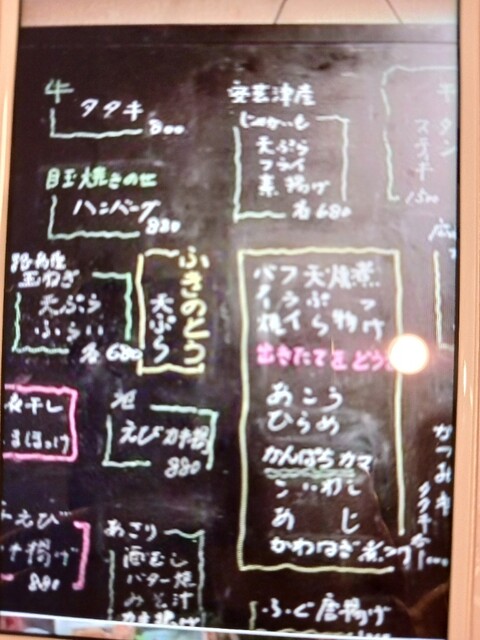 牛
タタキ
800
目玉焼きのせ
ハンバーグ
880
玉ねぎ
天ぷら
ふらい
各680
ふきのとう
天ぷら
安芸津産
じゃがいも
天ぷら
フライ
素揚げ
各680
牛
タン
ステーキ
1500
バター焼
フライ
天ぷら
焼物
煮つけ
出きたてを どう
あこう
ひらめ
かんぱちカマ
あじ
かわはぎ煮つけ
えびかき揚
880
夜干し
まほっけ
えび
かき揚げ
880
あさり
酒むし
バター焼
みそ汁
かき揚げ
ふぐ唐揚げ